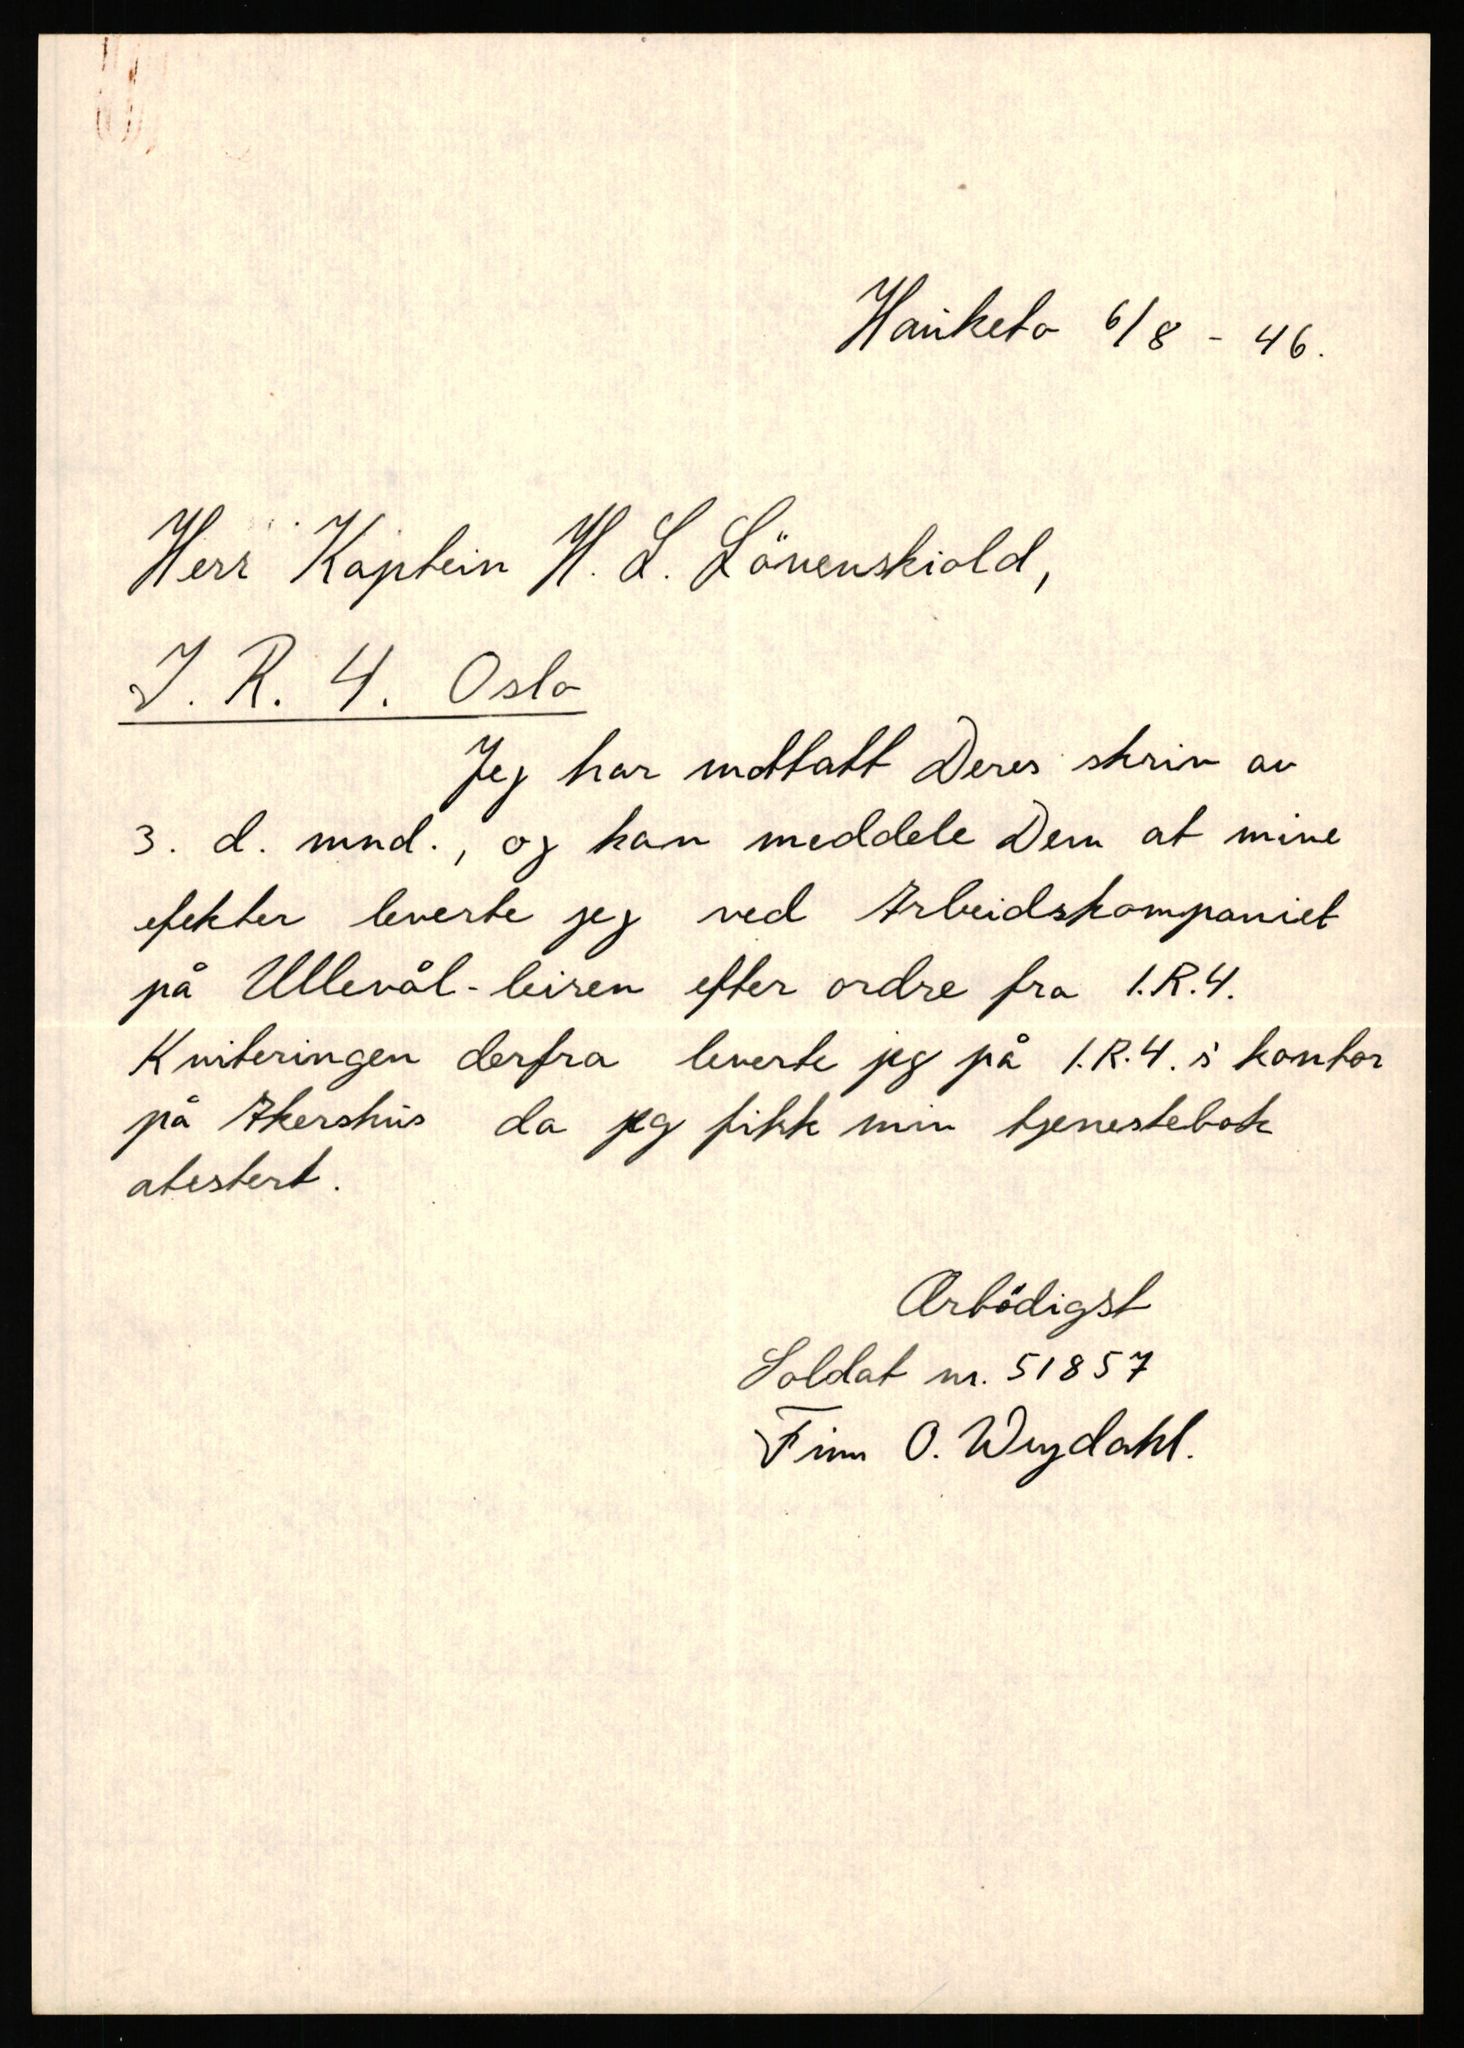 Hauketo 6/8 - 46.
Herr Kaptein H. L. Lövenskiold,
I. R. 4. Oslo
Jeg har mottatt Deres skriv av
3. d. mnd., og kan meddele Dem at mine
efekter leverte jeg ved Arbeidskompaniet
på Ullevål-leiren efter ordre fra I.R.4.
Kviteringen derfra leverte jeg på I.R.4.s kontor
på Akershus da jeg fikk min tjenestebok
atestert.
Ærbödigst
Soldat nr. 51857
Finn O. Wiydahl.